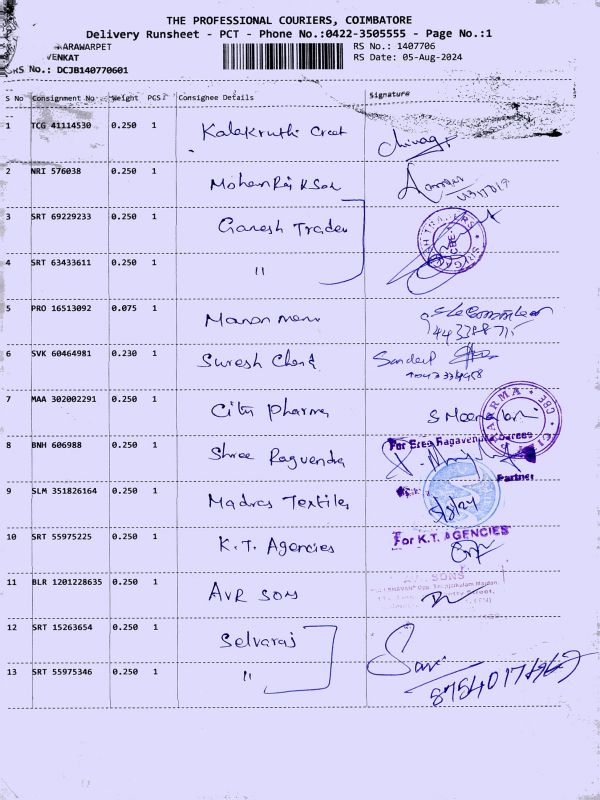 THE PROFESSIONAL COURIERS, COIMBATORE
Delivery Runsheet - PCT - Phone No.:0422-3505555 - Page No.:1
ARAWARPET RS No.: 1407706
VENKAT RS Date: 05-Aug-2024
DRS No.: DCJB140770601
S No Consignment No Weight PCS Consignee Details Signature
1 TCG 41114530 0.250 1 Kalakruthi Creat
2 NRI 576038 0.250 1 Mohan Raj K Son
3 SRT 69229233 0.250 1 Ganesh Trader
4 SRT 63433611 0.250 1 "
5 PRO 16513092 0.075 1
6 SVK 60464981 0.230 1 Suresh Chand Sandeep
7 MAA 302002291 0.250 1 City Pharma S Meenakshi
8 BNH 606988 0.250 1 Shree Raguvenda
For Sree Ragavendra Sarees
Partner
9 SLM 351826164 0.250 1 Madras Textiles 5/8/24
10 SRT 55975225 0.250 1 K.T. Agencies For K.T. AGENCIES
11 BLR 1201228635 0.250 1 AVR SONS
12 SRT 15263654 0.250 1 Selvaraj
13 SRT 55975346 0.250 1 "